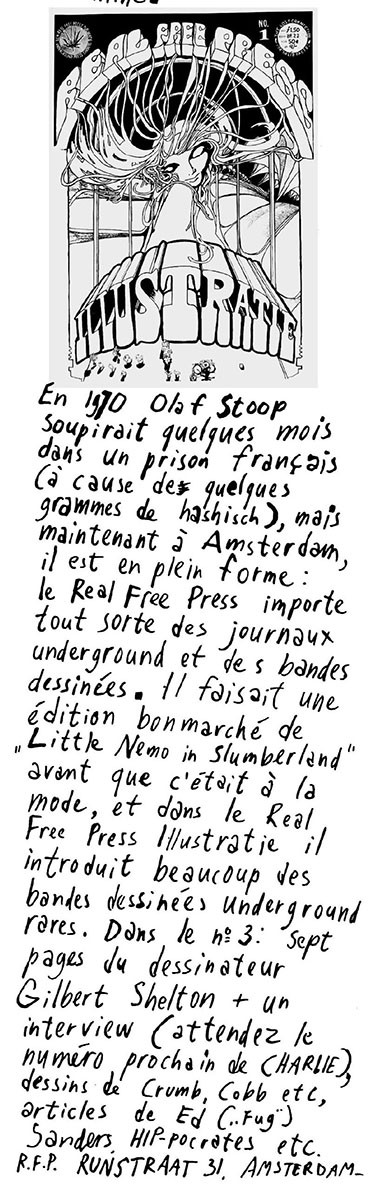 REAL FREE PRESS
NO. 1
f1.50
50¢
ILLUSTRATIE
En 1970 Olaf Stoop
soupirait quelques mois
dans un prison français
(à cause des quelques
grammes de hashisch), mais
maintenant à Amsterdam,
il est en plein forme:
le Real Free Press importe
tout sorte des journaux
underground et des bandes
dessinées. Il faisait une
édition bonmarché de
„Little Nemo in Slumberland"
avant que c'était à la
mode, et dans le Real
Free Press Illustratie il
introduit beaucoup des
bandes dessinées underground
rares. Dans le nº 3: Sept
pages du dessinateur
Gilbert Shelton + un
interview (attendez le
numéro prochain de CHARLIE),
dessins de Crumb, Cobb etc,
articles de Ed („Fug")
Sanders, HIP-pocrates etc.
R.F.P. RUNSTRAAT 31, AMSTERDAM-